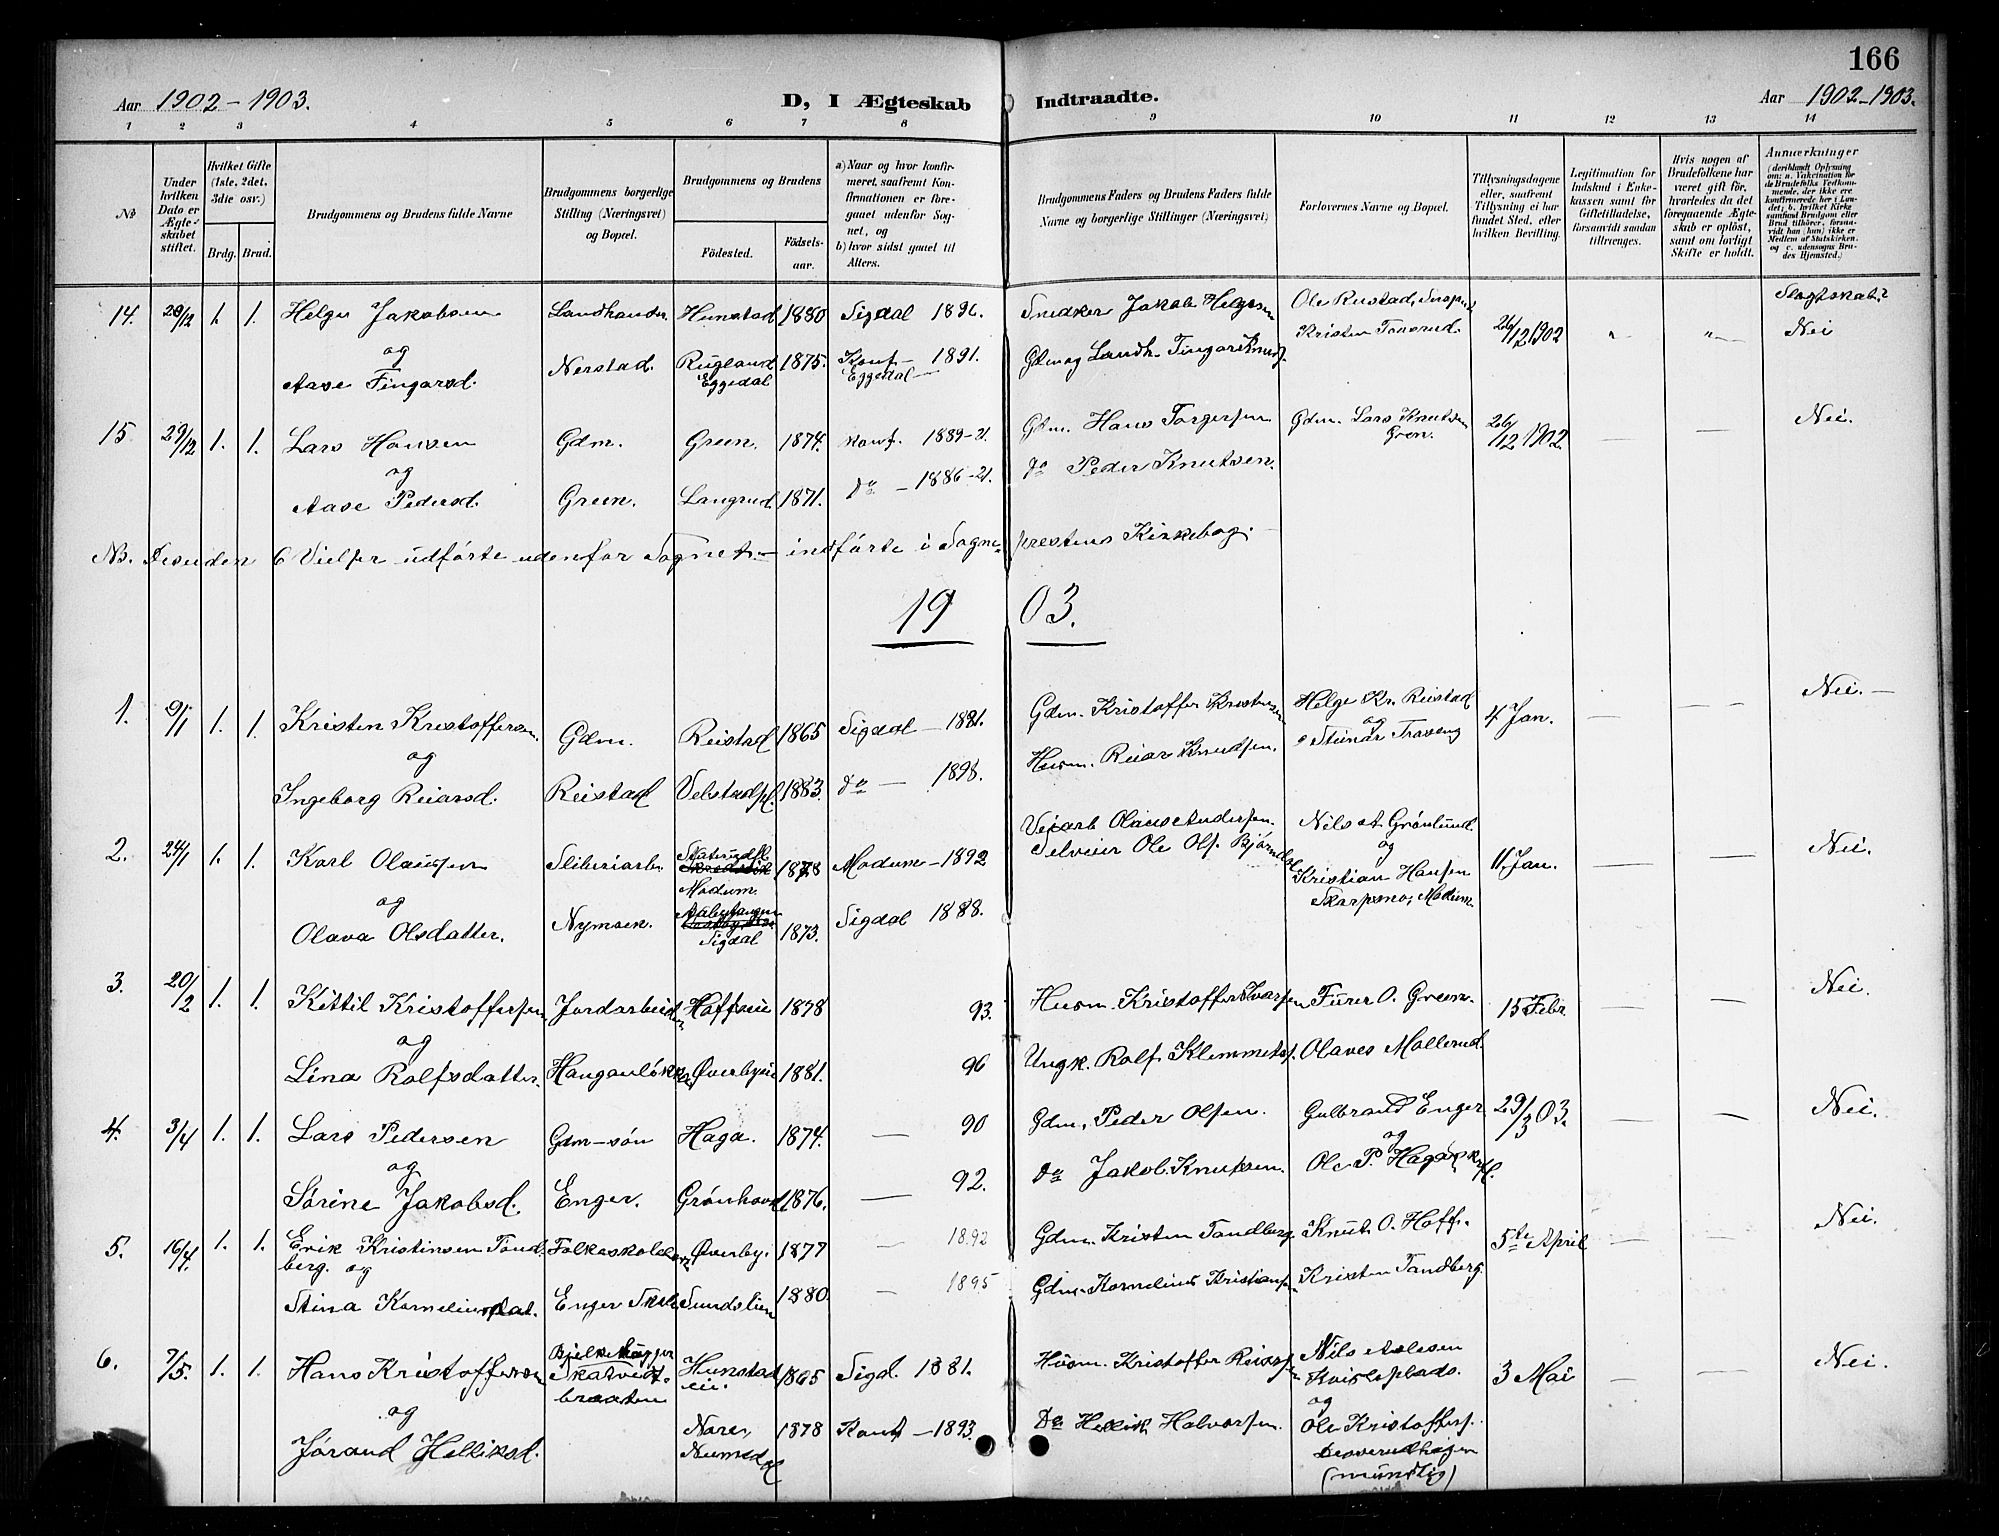 166
Aar 1902-1903.
D, I Ægteskab Indtraadte.
Aar 1902-1903.
1 2 3 4 5 6 7 8 9 10 11 12 13 14
No
Under hvilken Dato er Ægteskabet stiftet.
Hvilket Gifte (1ste, 2det, 3die osv.)
Brdg. Brud.
Brudgommens og Brudens fulde Navne
Brudgommens borgerlige Stilling (Næringsvei) og Bopæl.
Brudgommens og Brudens
Fødested.
Fødselsaar.
a) Naar og hvor konfirmeret, saafremt Konfirmationen er foregaaet udenfor Sognet, og
b) hvor sidst gaaet til Alters.
Brudgommens Faders og Brudens Faders fulde Navne og borgerlige Stillinger (Næringsvei)
Forlovernes Navne og Bopæl.
Tillysningsdagene eller, saafremt Tillysning ei har fundet Sted, efter hvilken Bevilling.
Legitimation for Indskud i Enkekassen samt for Giftetilladelse, forsaavidt saadan tiltrænges.
Hvis nogen af Brudefolkene har været gift før, hvorledes da det foregaaende Ægteskab er opløst, samt om lovligt Skifte er holdt.
Anmærkninger
(deriblandt Oplysning om: a. Vakcination for de Brudefolks Vedkommende, der ikke ere konfirmerede her i Landet; b. hvilket Kirkesamfund Brudgom eller Brud tilhører, forsaavidt han (hun) ikke er Medlem af Statskirken, og c. udensogns Brudes Hjemsted.)
Slægtskab?
14. 28/12 1. 1. Helge Jakobsen Landhandler Hunstad 1880 Sigdal 1896. Snedker Jakob Helgesen Ole Rustad,
Kristen Tonsrud. 26/12 1902 Nei
og
Aase Fingarsd. Nerstad. Rugland Eggedal 1875. Konf- Eggedal- 1891. Gdm og Landh. Fingar Knuds.
15 29/12 1. 1. Lars Hansen Gdm. Green. 1874. Konf. 1889-21. Gdm. Hans Torgersen Gdm. Lars Knutsen Green. 26/12 1902. — — Nei.
og
Aase Pedersd. Green. Langrud. 1871. do - 1886-21. do Peder Knutsen.
NB. Desuden 6 Vielser udførte udenfor Sognet. - indførte i Sogneprestens Kirkebog. -
1903.
1. 9/1 1. 1. Kristen Kristoffersen Gdm. Reistad 1865 Sigdal - 1881. Gdm. Kristoffer Kristensen Helge Kr. Reistad 4 Jan. — — Nei. -
og
Ingeborg Reiarsd. Reistad Velstadpl. 1883. do - 1898. Husm. Reiar Knudsen. og Stenar Traaeng
2. 24/1 1. 1. Karl Olaussen Sliberiarb. Modum. 1878 Modum - 1892 Veiarb Olaus Andersen. Nils A Grønlund. 11 Jan. — — Nei.
og
Olava Olsdatter. Nymoen. Sigdal 1873. Sigdal 1888. Selveier Ole Ols. Bjørndal og Kristian Hansen Skarpsno, Modum.
3. 20/2 1. 1. Kittil Kristoffersen Jordarbeider Hoffseie 1878 93. Husm. Kristoffer Ivarsen Furer O. Green. 15 Febr. — — Nei.
og
Lina Rolfsdatter. Hauganløkka Øverbyeie 1881. 96 Ungk. Rolf Klemmets. Olaves Mollerud.
4. 3/4 1. 1. Lars Pedersen Gdm-søn Haga. 1874. — 90 Gdm. Peder Olsen. Gulbrand Enger 29/3 03. — — Nei.
og
Sørine Jakobsd. Enger. Grønhovd 1876. — 92. Do Jakob Knutsen. og Ole P. Haga
5. 16/4. 1. 1. Erik Kristinsen Tandberg. Folkeskolelærer Øverby. 1877 — 1892 Gdm. Kristen Tandberg. Knut O. Hoff. 5te April — — Nei.
og
Stina Korneliusdat. Enger Skole Sundslien 1880. — 1895 Gdm. Kornelius Kristians. Kristen Tandberg.
6. 7/5. 1. 1. Hans Kristoffersen Bjelkehugger Skatvedtbraaten Hunstadeie 1865 Sigd. 1881. Husm. Kristoffer Reiersen Nils Aslesen Kvisleplads. 3 Mai — — Nei.
og
Jørand Helliksd. Nore, Numedal 1878 Konf - 1893. Do Hellik Halvorsen. og Ole Kristoffers.
(mundtlig)